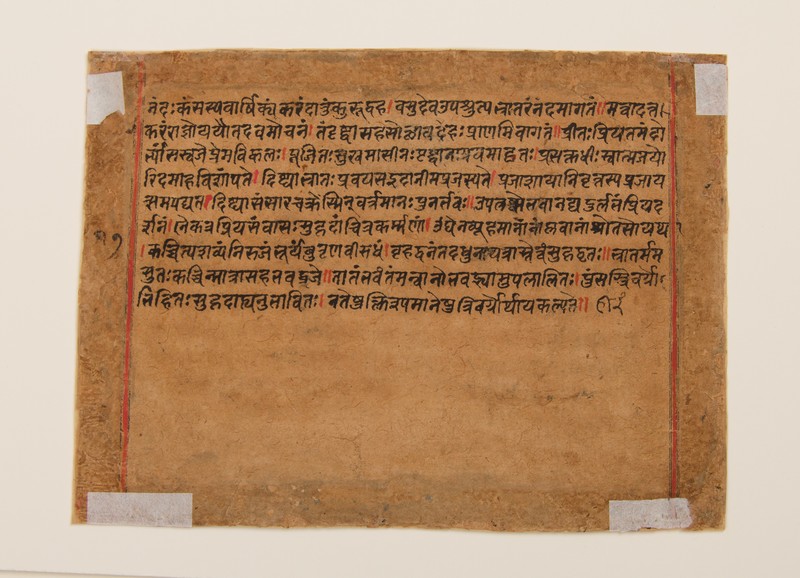 नंदः कंसस्य वार्षिक्यं करं दातुं कुरूद्वह। वसुदेव उपश्रुत्य भ्रातरं नंदमागतं॥ मत्वा दत्त
करं राज्ञे ययौ तदवमोचनं। तं दृष्ट्वा सहसोत्थाय देहः प्राणमिवागतं॥ प्रीतः प्रियतमं दो
र्भ्यां सस्वजे प्रेमविकलः। पूजितः सुखमासीनः पृष्ट्वानामयमादृतः। प्रसक्तधीः स्वात्मजयो
रिदमाह विशांपते। दिष्ट्या भ्रातः प्रवयस इदानीमप्रजस्य ते। प्रजाशाया निवृत्तस्य प्रजा य
त्समपद्यत। दिष्ट्या संसारचक्रेस्मिन् वर्त्तमानः पुनर्भवः॥ उपलब्धो भवानद्य दुर्लभं प्रियद
र्शनं। नैकत्र प्रियसंवासः सुहृदां चित्रकर्म्मणां। ओघेन व्यूह्यमानानां प्लवानां स्रोतसो यथा
। कच्चित्पशव्यं निरुजं भूर्यंबुतृणवीरुधं। बृहद्वनं तदधुना यत्रास्से त्वं सुहृद्वृतः॥ भ्रातर्मम
सुतः कच्चिन्मात्रा सह भवद्व्रजे॥ तातं भवंतं मन्वानो भवद्भ्यामुपलालितः। पुंसस्त्रिवर्गो
विहितः सुहृदो ह्यनुभावितः। न तेषु क्लिश्यमानेषु त्रिवर्गोर्थाय कल्पते॥